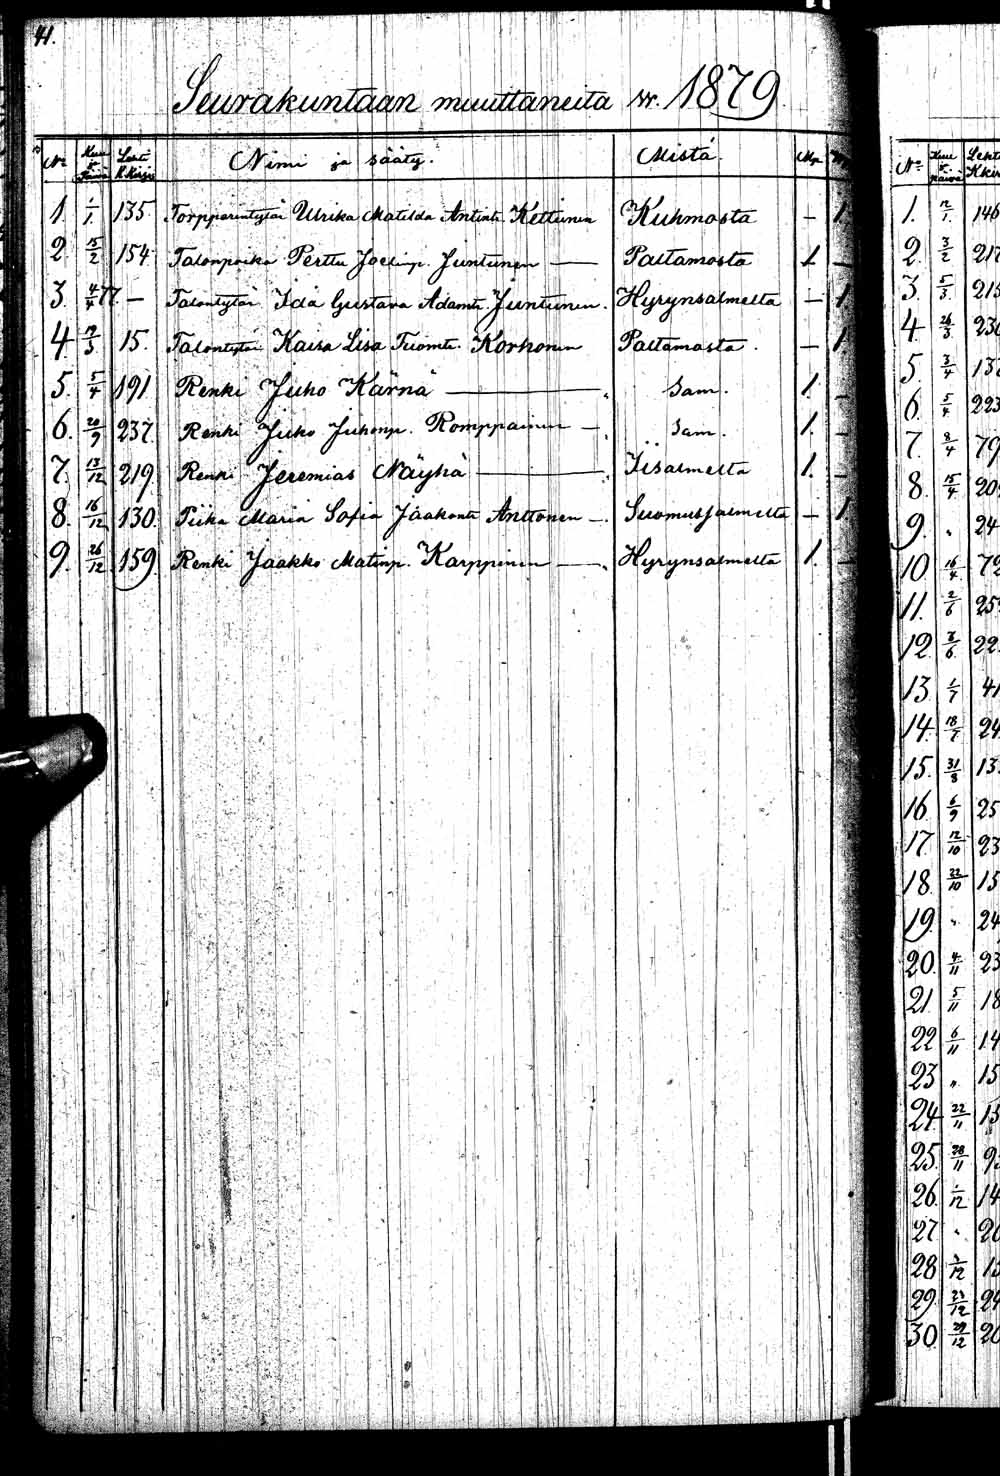 41.
Seurakuntaan muuttaneita v. 1879
No Kuu ja Päivä Lehti K.Kirja Nimi ja sääty. Mistä. Mp. Vp.
1. 1/1. 135. Torpparintytär Ulrika Matilda Antint. Kettunen Kuhmosta – 1.
2. 15/2 154. Talonpoika Perttu Joelinp. Juntunen — Paltamosta 1. –
3. 4/4 77. – Talontytär Ida Gustava Adamt. Juntunen. Hyrynsalmelta – 1.
4. 12/3 15. Talontytär Kaisa Lisa Tuomt. Korhonen Paltamosta. – 1.
5. 5/4 191 Renki Juho Kärnä — Sam. 1. –
6. 20/9 237. Renki Juho Juhonp. Romppainen – Sam. 1. –
7. 13/12 219. Renki Jeremias Näyhä — Iisalmelta 1. –
8. 16/12 130. Piika Maria Sofia Jaakont. Anttonen –. Suomussalmelta – 1
9. 26/12 159. Renki Jaakko Matinp. Karppinen —. Hyrynsalmelta 1. –
No Kuu ja päivä Lehti K.kir
1. 12/1. 146
2. 3/2 217
3. 5/3. 215
4. 26/3 230
5. 3/4 132
6. 5/4 223
7. 8/4 79
8. 15/4 20
9. " 24
10. 16/4 72
11. 2/6 25
12. 8/6 22
13. 1/7 41
14. 18/7 24
15. 31/8 13
16 6/9 25
17 12/10 23
18. 22/10 15
19. " 24
20. 4/11 23
21. 5/11 18
22 6/11 14
23 " 15
24. 22/11 15
25. 28/11 9
26. 1/12 14
27 " 20
28 /12 15
29. 23/12 24
30. 29/12 20